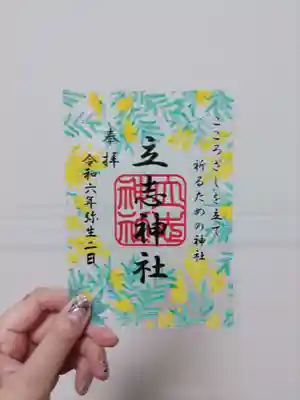 こころざしを立て
祈るための神社
立志神社
立志神社
奉拝
令和六年弥生二日